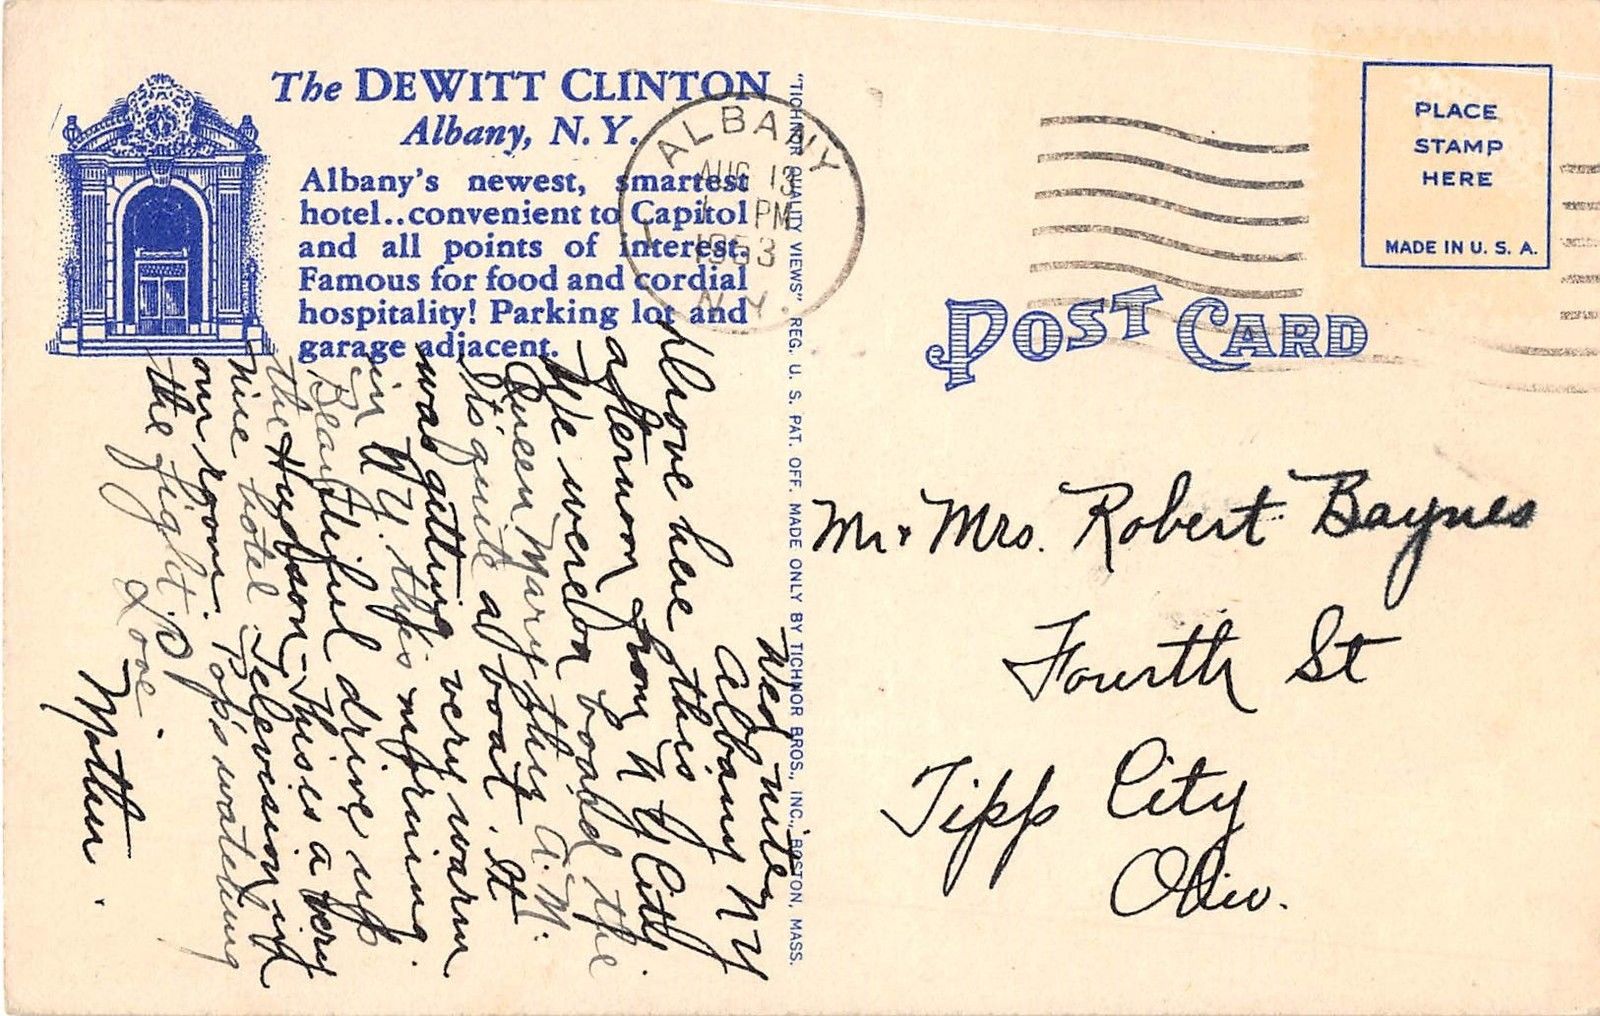 The DEWITT CLINTON
Albany, N. Y.
Albany's newest, smartest
hotel..convenient to Capitol
and all points of interest.
Famous for food and cordial
hospitality! Parking lot and
garage adjacent.
ALBANY
AUG 19
PM
1953
N.Y.
"TICHNOR QUALITY VIEWS" REG. U. S. PAT. OFF. MADE ONLY BY TICHNOR BROS., INC., BOSTON, MASS.
PLACE
STAMP
HERE
MADE IN U. S. A.
POST CARD
Wed nite,
Albany N Y
Drove here this
afternoon from N Y City
We were on board the
Queen Mary this A.M.
It's quite a boat. It
was getting very warm
in N.Y. this morning.
Beautiful drive up
the Hudson - This is a very
nice hotel. Television in
our room. Pop's watching
the fight. :P
Love.
Mother.
Mr & Mrs. Robert Baynes
Fourth St
Tipp City
Ohio.